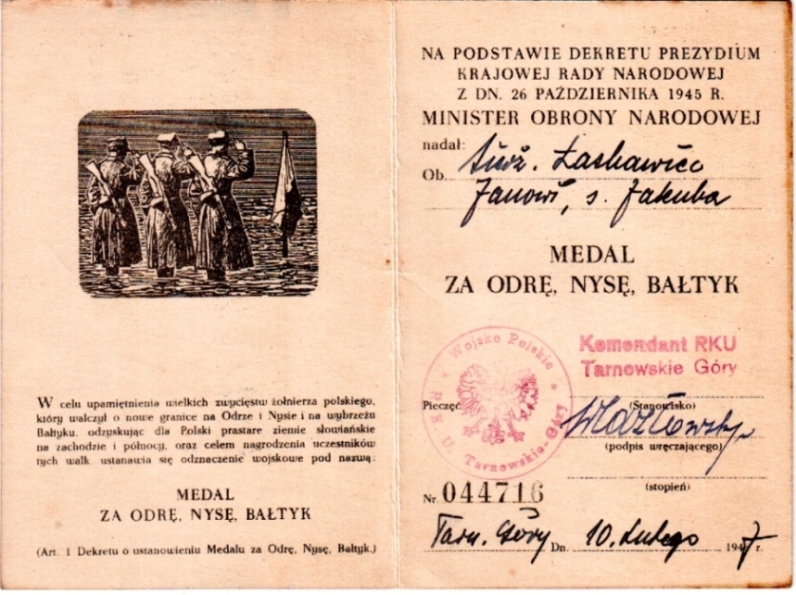 W celu upamiętnienia wielkich zwycięstw żołnierza polskiego,
który walczył o nowe granice na Odrze i Nysie i na wybrzeżu
Bałtyku, odzyskując dla Polski prastare ziemie słowiańskie
na zachodzie i północy, oraz celem nagrodzenia uczestników
tych walk ustanawia się odznaczenie wojskowe pod nazwą:
MEDAL
ZA ODRĘ, NYSĘ, BAŁTYK
(Art. 1 Dekretu o ustanowieniu Medalu za Odrę, Nysę, Bałtyk.)
NA PODSTAWIE DEKRETU PREZYDIUM
KRAJOWEJ RADY NARODOWEJ
Z DN. 26 PAŹDZIERNIKA 1945 R.
MINISTER OBRONY NARODOWEJ
nadał:
Ob.
Janowi, s. Jakuba
MEDAL
ZA ODRĘ, NYSĘ, BAŁTYK
Wojsko Polskie
R. K. U. Tarnowskie-Góry
Komendant RKU
Tarnowskie Góry
Pieczęć
(Stanowisko)
(podpis wręczającego)
(stopień)
Nr. 044716
Tarn. Góry Dn. 10. Lutego 1947 r.